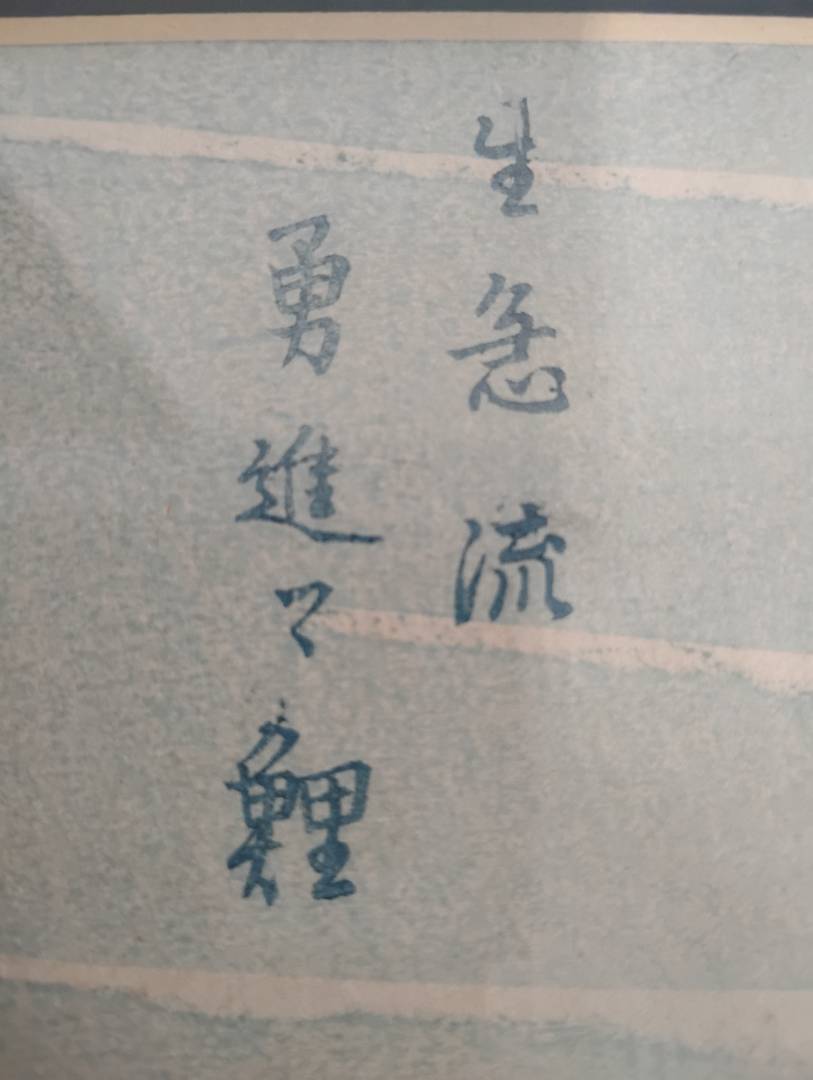 生急流
勇進之鯉